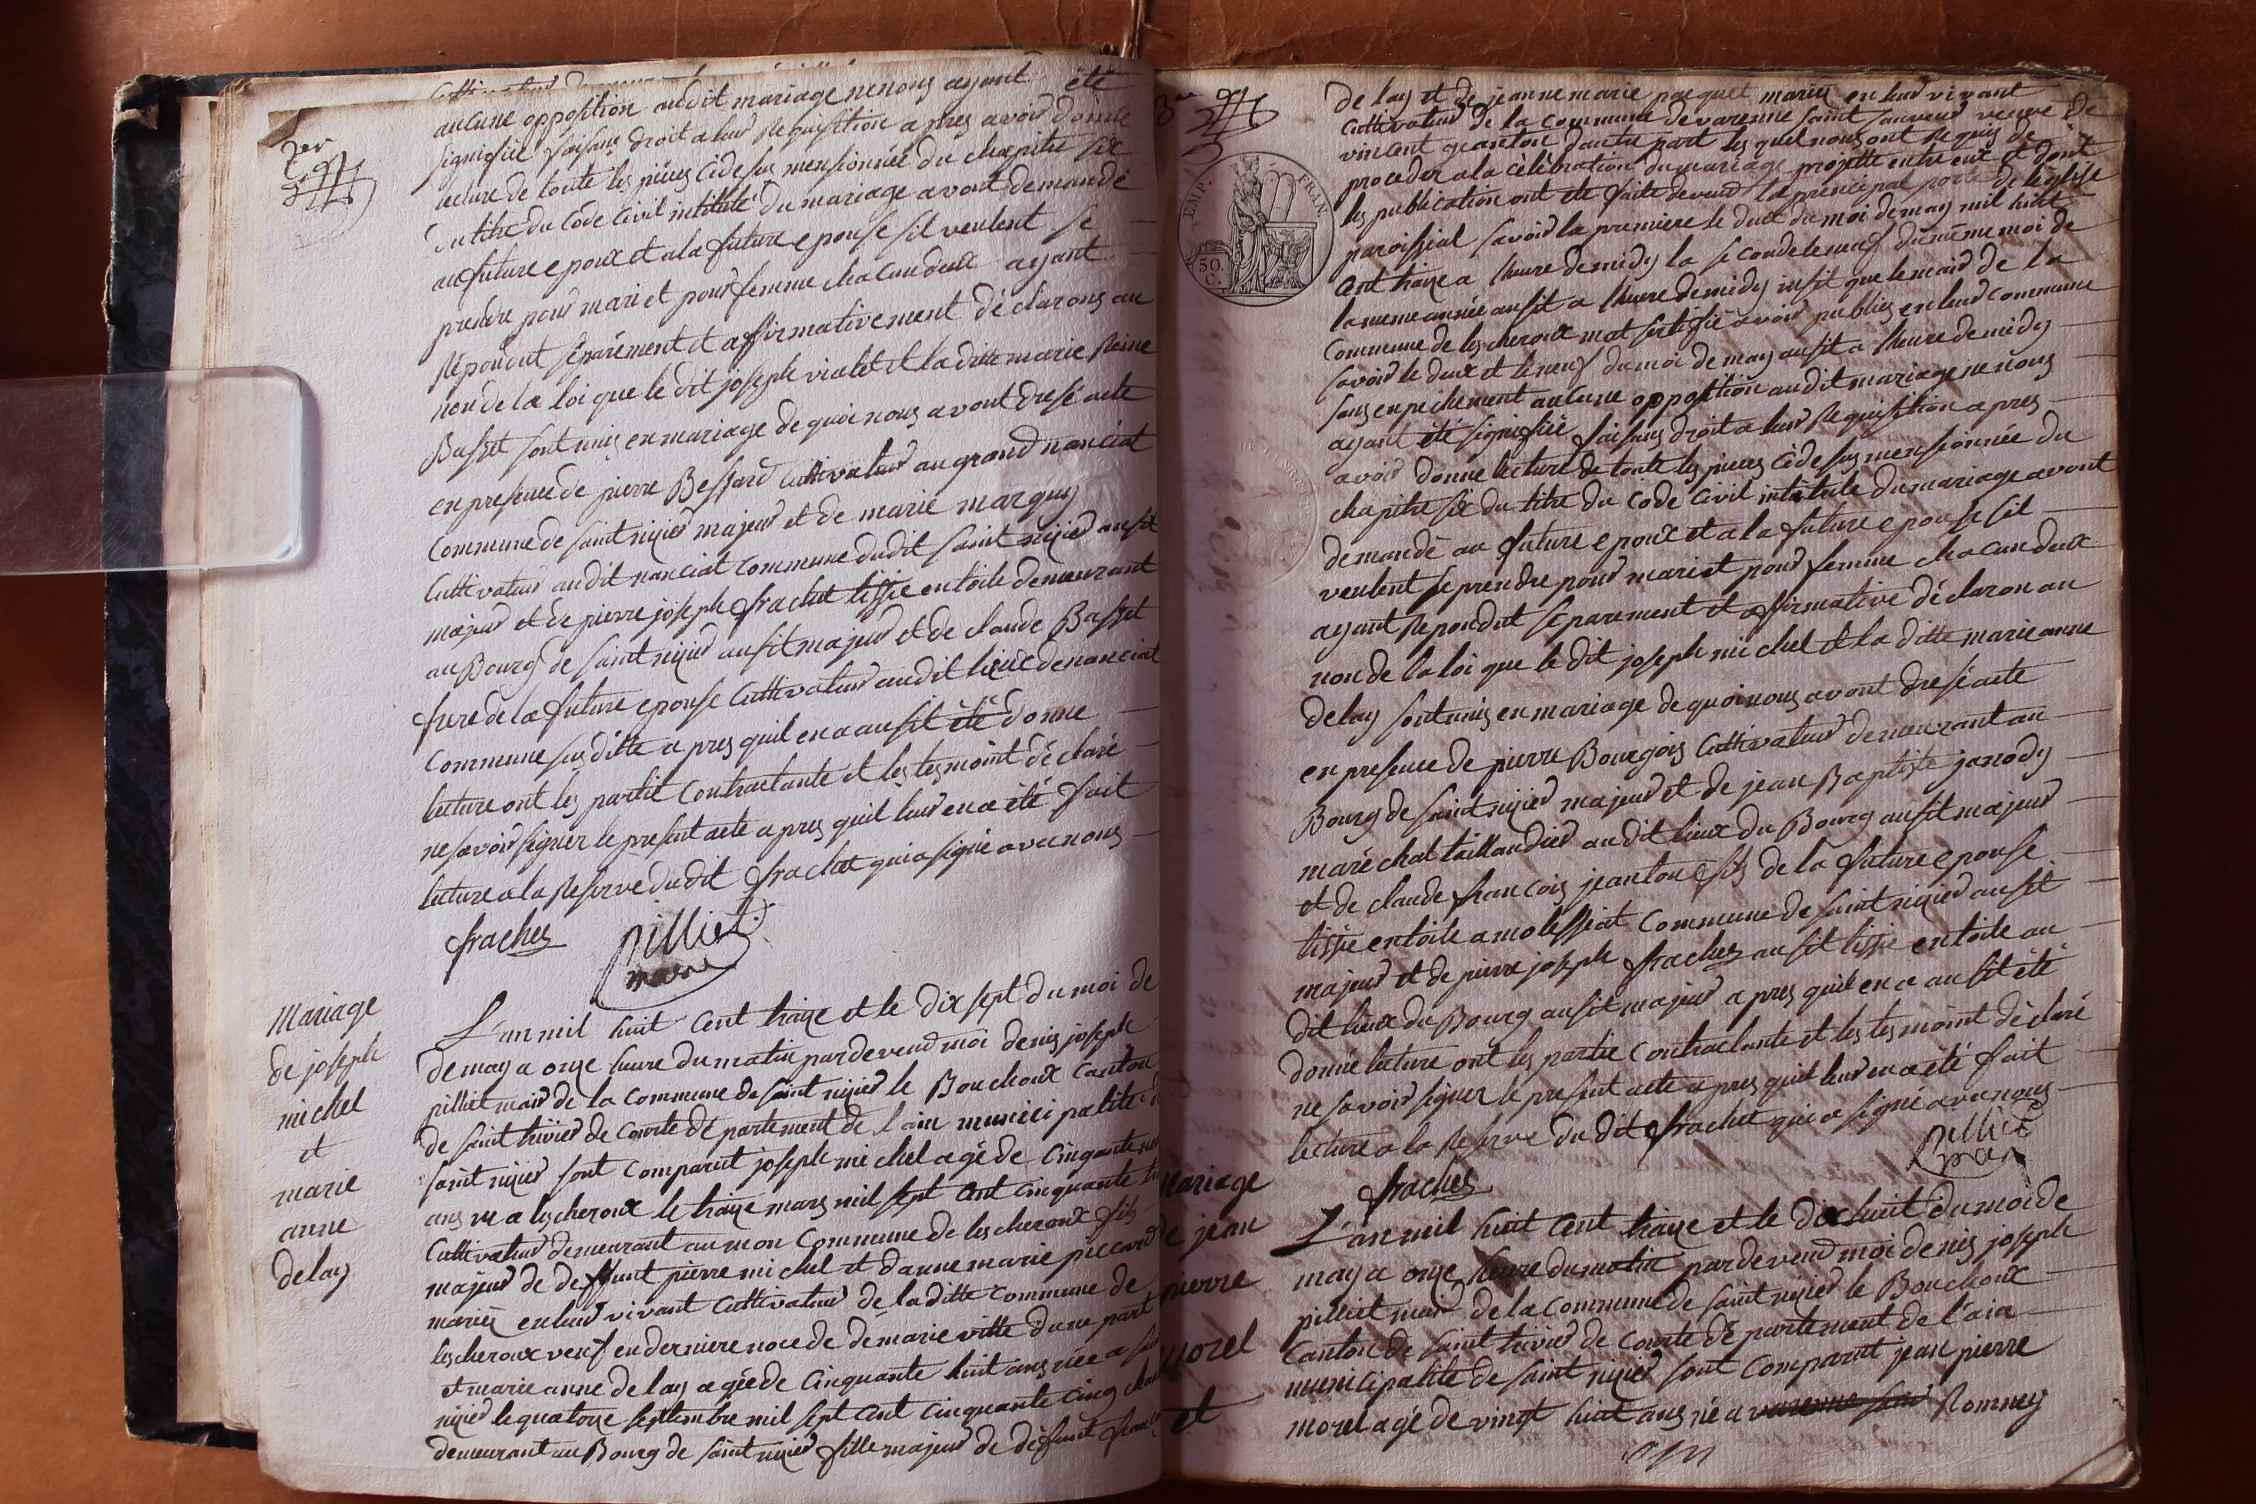 aucune opposition audit mariage ne nous ayant été
signifiié faisans droit a leur Requisition apres avoir donné
lecture de toute les pièces cidesus mensionnée du chapitre six
du titre du Code Civil intitulé du mariage avont demandé
au future epoux et a la future epouse sil veulent se
prendre pour mari et pour femme chacun deux ayant
Répondut séparément et affirmativement déclarons au
non de la loi que le dit joseph vialet et la ditte marie Reine
Basset sont unis en mariage de quoi nous avont dresé acte
en presence de pierre Bessard Cultivateur au grand nanciat
Commune de saint nizier majeur et de marie marguy
Cultivateur audit nanciat Commune dudit saint nizier ausit
majeur et de pierre joseph frachet tissie en toile demeurant
au Bourg de saint nizier ausit majeur et de claude Basset
frere de la future epouse Cultivateur audit lieux de nanciat
Commune sus ditte apres quil en a ausit été donne
lecture ont les partit Contractante et les tesmoint déclaré
ne savoir signer le present acte apres quil leur en a été fait
lecture a la Reserve du dit frachet qui a signé avec nous
frachet pilliet
maire
Mariage
de joseph
michel
et
marie
anne
delay
L'an mil huit Cent traize et le dix sept du moi de
de may a onze heure du matin pardevend moi denis joseph
pilliet mair de la Commune de saint nizier le Bouchoux Canton
de saint trivier de Courte département de l'ain municipalité de
saint nizier sont Comparut joseph michel agé de Cinquante
ans né a lescheroux le traize mars mil sept Cent cinquante
Cultivateur demeurant au mon Commune de lescheroux fils
majeur de deffunt pierre michel et d'anne marie piccard
mariéz en leur vivant Cultivateur de la ditte Commune de
lescheroux veuf en derniere noce de de marie ville d'une part
et marie anne delay agée de Cinquante huit ans née a
nizier le quatorze septembre mil sept Cent cinquante cinq
demeurant au Bourg de saint nizier fille majeur de défunt
delay et de jeanne marie paquet mariéz en leur vivant
Cultivateur de la Commune de varenne saint sauveur veuve de
vincent jeanton d'autre part les quel nous ont Requis de
proceder a la célébration du mariage projetté entre eux et dont
les publication ont été faite devend la principal porte de leglise
paroissial savoir la premiere le deux du moi de may mil huit
Cent traize a lheure de midy la seconde le neuf du même moi de
la meme année ausit a lheure de midy insit que le mair de la
Commune de lescheroux mat sertifié avoir publies en leur Commune
savoir le deux et le neuf du moi de may ausit a lheure de midy
sans enpechement aucune opposition audit mariage ne nous
ayant été signifiié faisans droit a leur Requisition apres
avoir donne lecture de toute les pieces cidesus mensionnée du
chapitre six du titre du Code Civil intitule du mariage avont
demandé au future epoux et a la future epouse sil
veulent se prendre pour mari et pour femme chacun deux
ayant Repondut séparement et affirmative déclaron au
non de la loi que le dit joseph michel et la ditte marie anne
delay sont unis en mariage de quoi nous avont dresé acte
en presence de pierre Bourgois Cultivateur demeurant au
Bourg de saint nizier majeur et de jean Baptiste janody
maréchal taillandier audit lieux du Bourg ausit majeur
et de claude francois jeanton fils de la future epouse
tissie en toile a molissiat Commune de saint nizier ausit
majeur et de pierre joseph frachet ausit tissie en toile au
dit lieux du Bourg ausit majeur apres quil en a ausit été
donné lecture ont les partie Contractante et les tesmoint déclaré
ne savoir signer le present acte apres quil leur en a été fait
lecture a la Reserve du dit frachet qui a signé avec nous
pilliet
frachet
mair
Mariage
de jean
pierre
morel
et
L'an mil huit Cent traize et le dix huit du moi de
may a onze heure du matin pardevend moi denis joseph
pilliet mair de la Commune de saint nizier le Bouchoux
Canton de saint trivier de Courte département de l'ain
municipalite de saint nizier sont Comparut jean pierre
morel agé de vingt huit ans né a varenne sai Romney